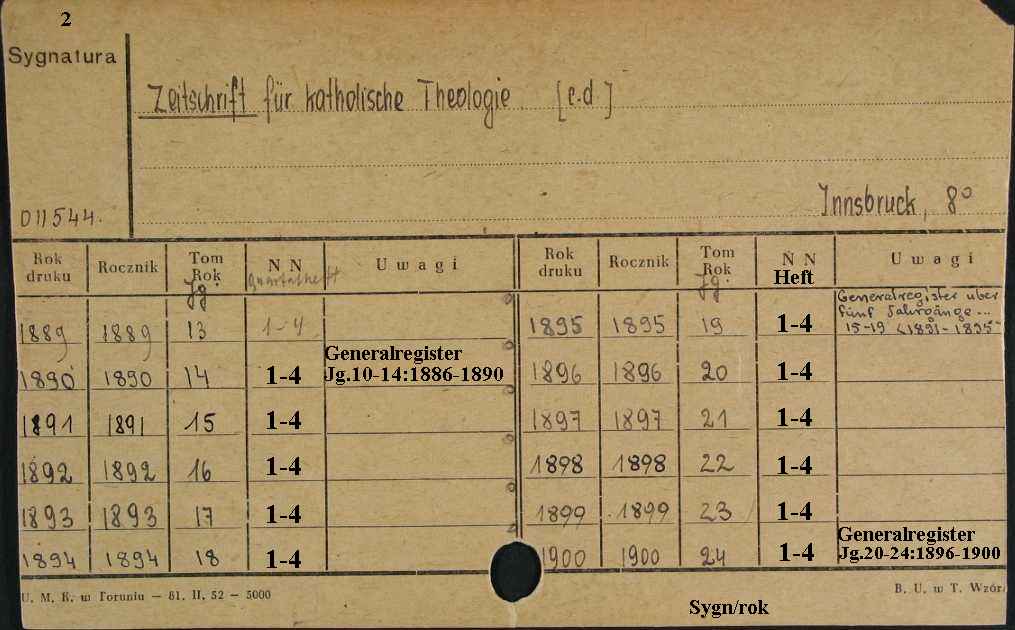 2
Sygnatura
Zeitschrift für katholische Theologie. [c.d.]
Innsbruck, 8°
011544.
Rok druku Rocznik Tom Rok Jg. N N Quartalheft Uwagi Rok druku Rocznik Tom Rok Jg. N N Heft Uwagi
1889 1889 13 1-4 1895 1895 19 1-4 Generalregister über fünf Jahrgänge... 15-19 <1891-1895>
1890 1890 14 1-4 Generalregister Jg.10-14:1886-1890 1896 1896 20 1-4
1891 1891 15 1-4 1897 1897 21 1-4
1892 1892 16 1-4 1898 1898 22 1-4
1893 1893 17 1-4 1899 1899 23 1-4
1894 1894 18 1-4 1900 1900 24 1-4 Generalregister Jg.20-24:1896-1900
U. M. K. w Toruniu — 61. II. 52 — 5000
B. U. w T. Wzór
Sygn/rok